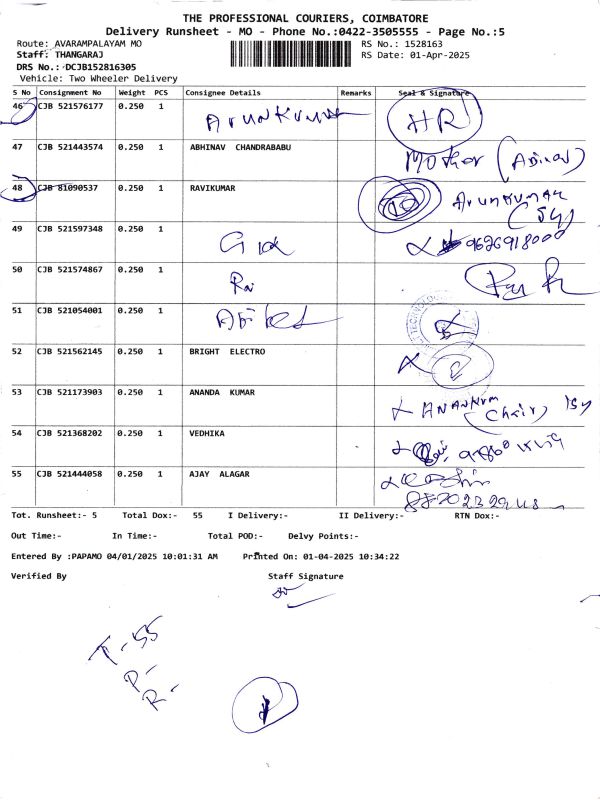 THE PROFESSIONAL COURIERS, COIMBATORE
Delivery Runsheet - MO - Phone No.:0422-3505555 - Page No.:5
Route: AVARAMPALAYAM MO RS No.: 1528163
Staff: THANGARAJ RS Date: 01-Apr-2025
DRS No.: DCJB152816305
Vehicle: Two Wheeler Delivery
S No Consignment No Weight PCS Consignee Details Remarks Seal & Signature
46 CJB 521576177 0.250 1 Arunkumar HR
47 CJB 521443574 0.250 1 ABHINAV CHANDRABABU Mother
48 CJB 81090537 0.250 1 RAVIKUMAR Arunkumar
49 CJB 521597348 0.250 1 9626918000
50 CJB 521574867 0.250 1
51 CJB 521054001 0.250 1
52 CJB 521562145 0.250 1 BRIGHT ELECTRO
53 CJB 521173903 0.250 1 ANANDA KUMAR
54 CJB 521368202 0.250 1 VEDHIKA
55 CJB 521444058 0.250 1 AJAY ALAGAR
Tot. Runsheet:- 5 Total Dox:- 55 I Delivery:- II Delivery:- RTN Dox:-
Out Time:- In Time:- Total POD:- Delvy Points:-
Entered By :PAPAMO 04/01/2025 10:01:31 AM Printed On: 01-04-2025 10:34:22
Verified By Staff Signature
T-55
P-
R-